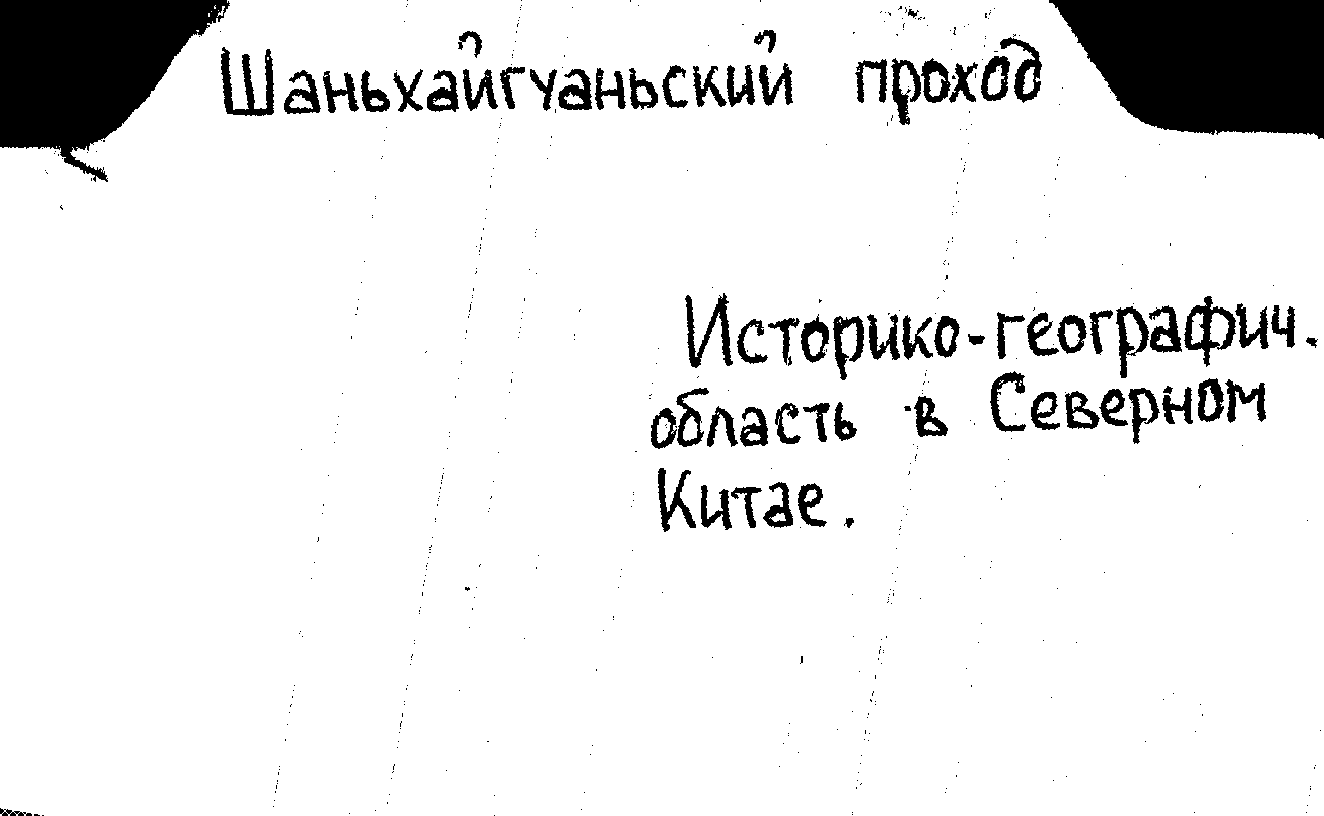 Шаньхайгуаньский проход
Историко-географич.
область в Северном
Китае.